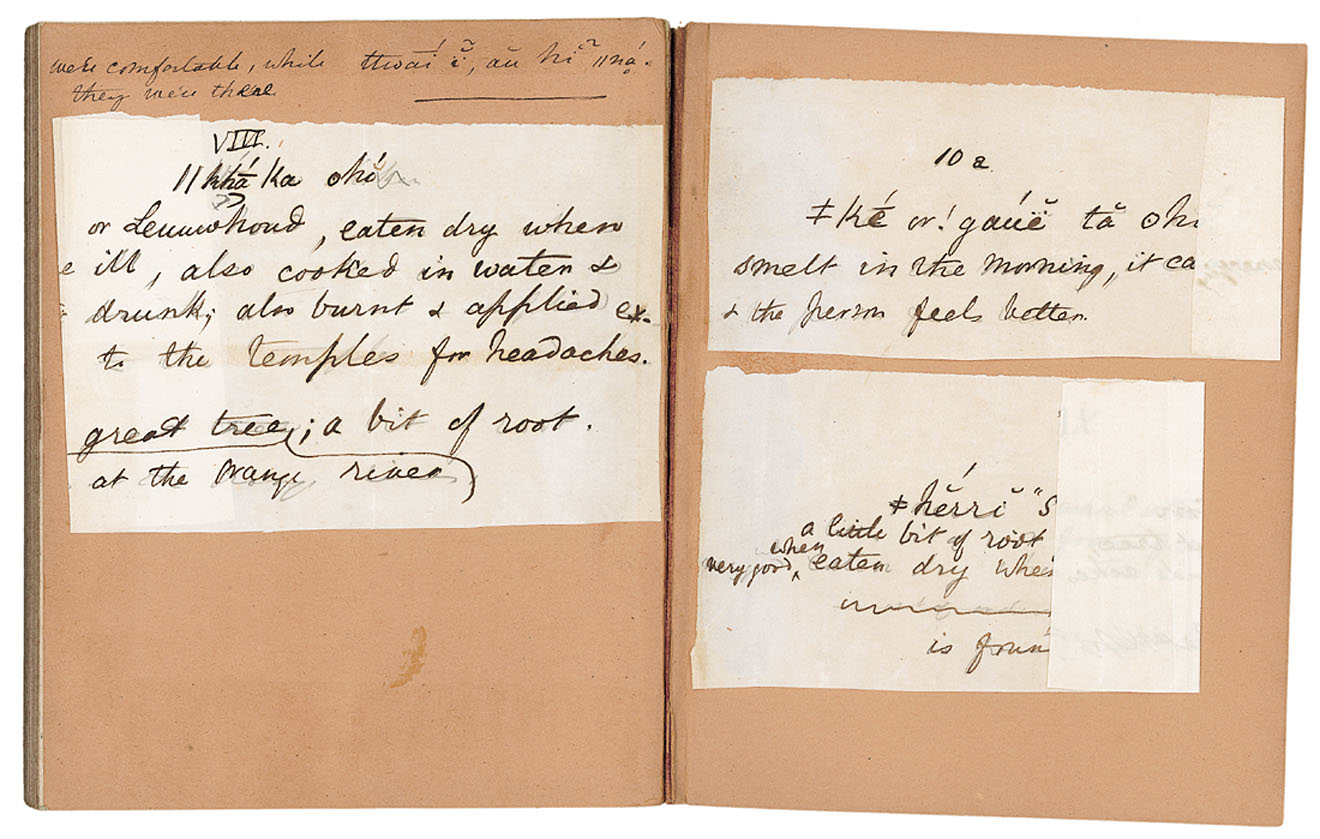 were comfortable, while ttwāi ĭ̃, au hĭ̃ ǁná̤.
they were there
VIII.
ǁkhá̄ ka ʘhó
or Leeuwhoud, eaten dry when
e ill, also cooked in water &
drunk; also burnt & applied ex-
to the temples for headaches.
great tree; a bit of root.
at the Orange river)
10 a
ǂKé or !gáuĕ̈ tă ʘh
smelt in the morning, it ca
& the person feels better.
ǂhĕ́rrĭ "S
a little bit of root
very good, when eaten dry whe
is foun